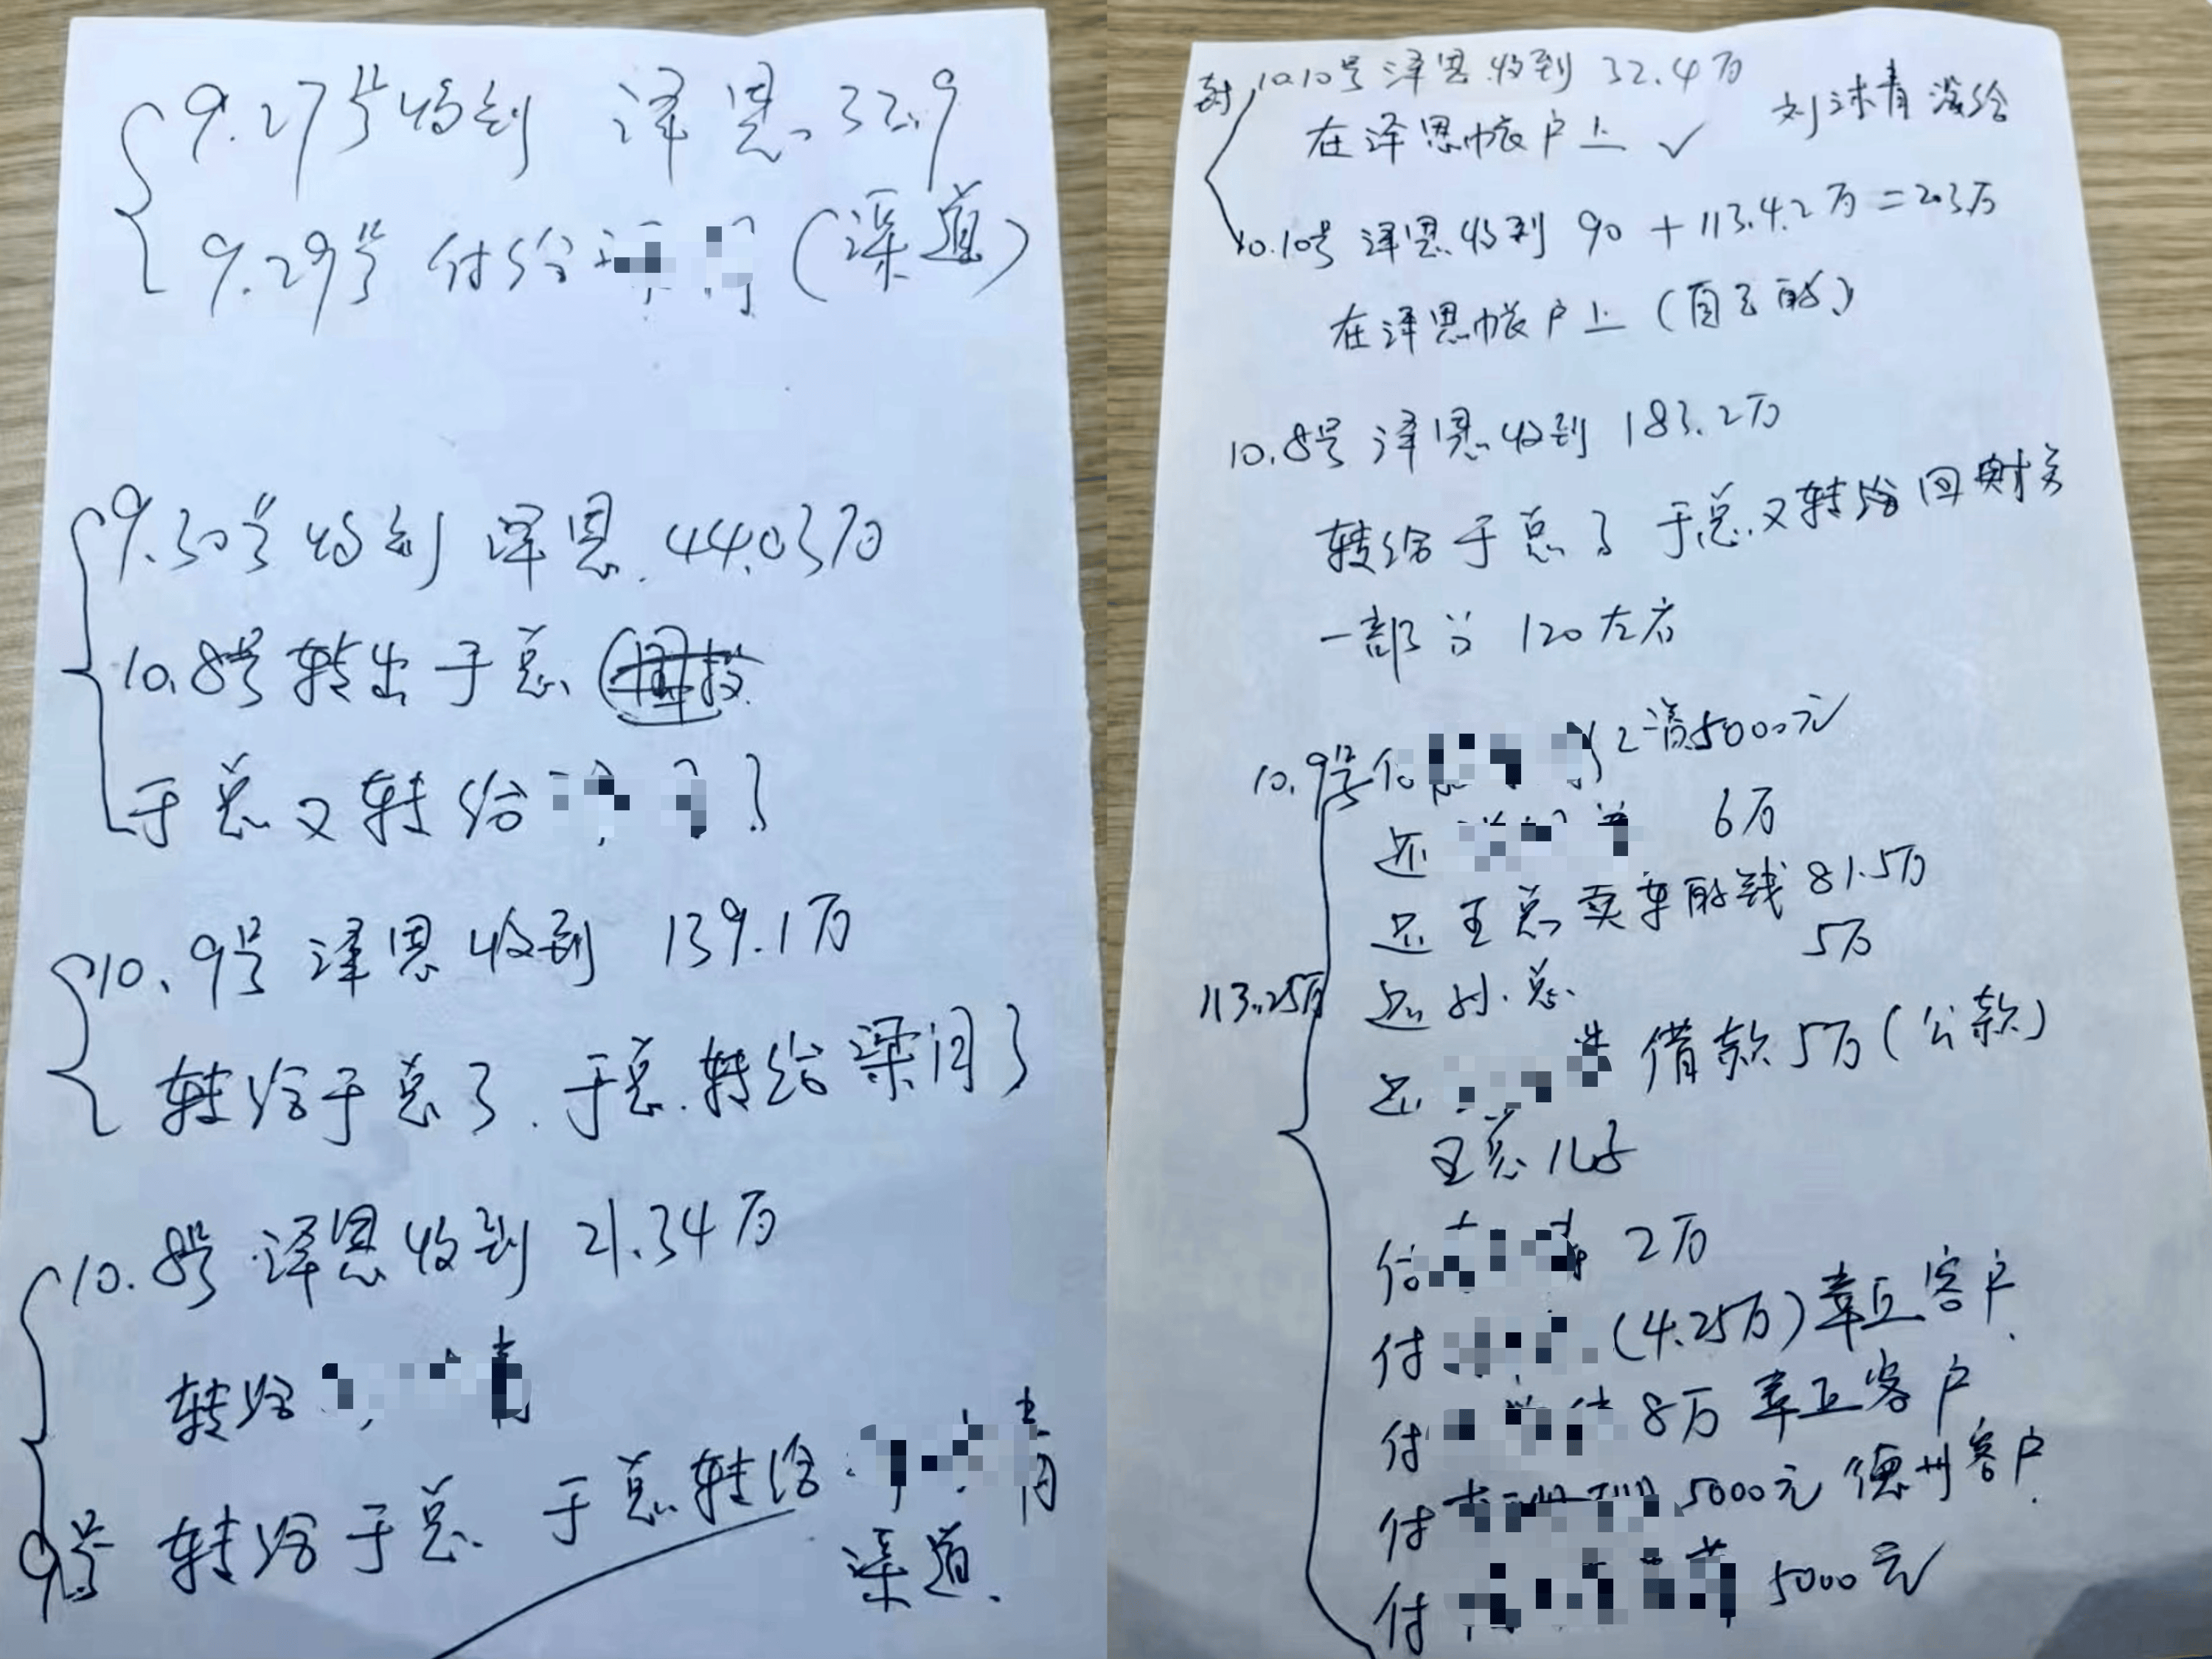 9.27号收到 泽恩 32.9
9.29号 付给 (渠道)
9.30号收到 泽恩 44.03万
10.8号转出于总
于总又转给 了
10.9号 泽恩收到 139.1万
转给于总了.于总转给梁闰了
10.8号 泽恩收到 21.34万
转给
9号 转给于总 于总转给
渠道.
10.10号 泽恩收到 32.4万
在泽恩帐户上 ✓
10.10号 泽恩收到 90 + 113.4.2万 = 203万
在泽恩帐户上 (自己的)
10.8号 泽恩收到 183.2万
转给于总了 于总又转给
一部分 120左右
10.9号 5000元
还 6万
还王总卖车的钱 81.5万
还 总 5万
113.25万
还 借款5万(公款)
王总儿子
付 2万
付 (4.25万)章丘客户.
付 8万 章丘客户
付 5000元 德州客户.
付 5000元